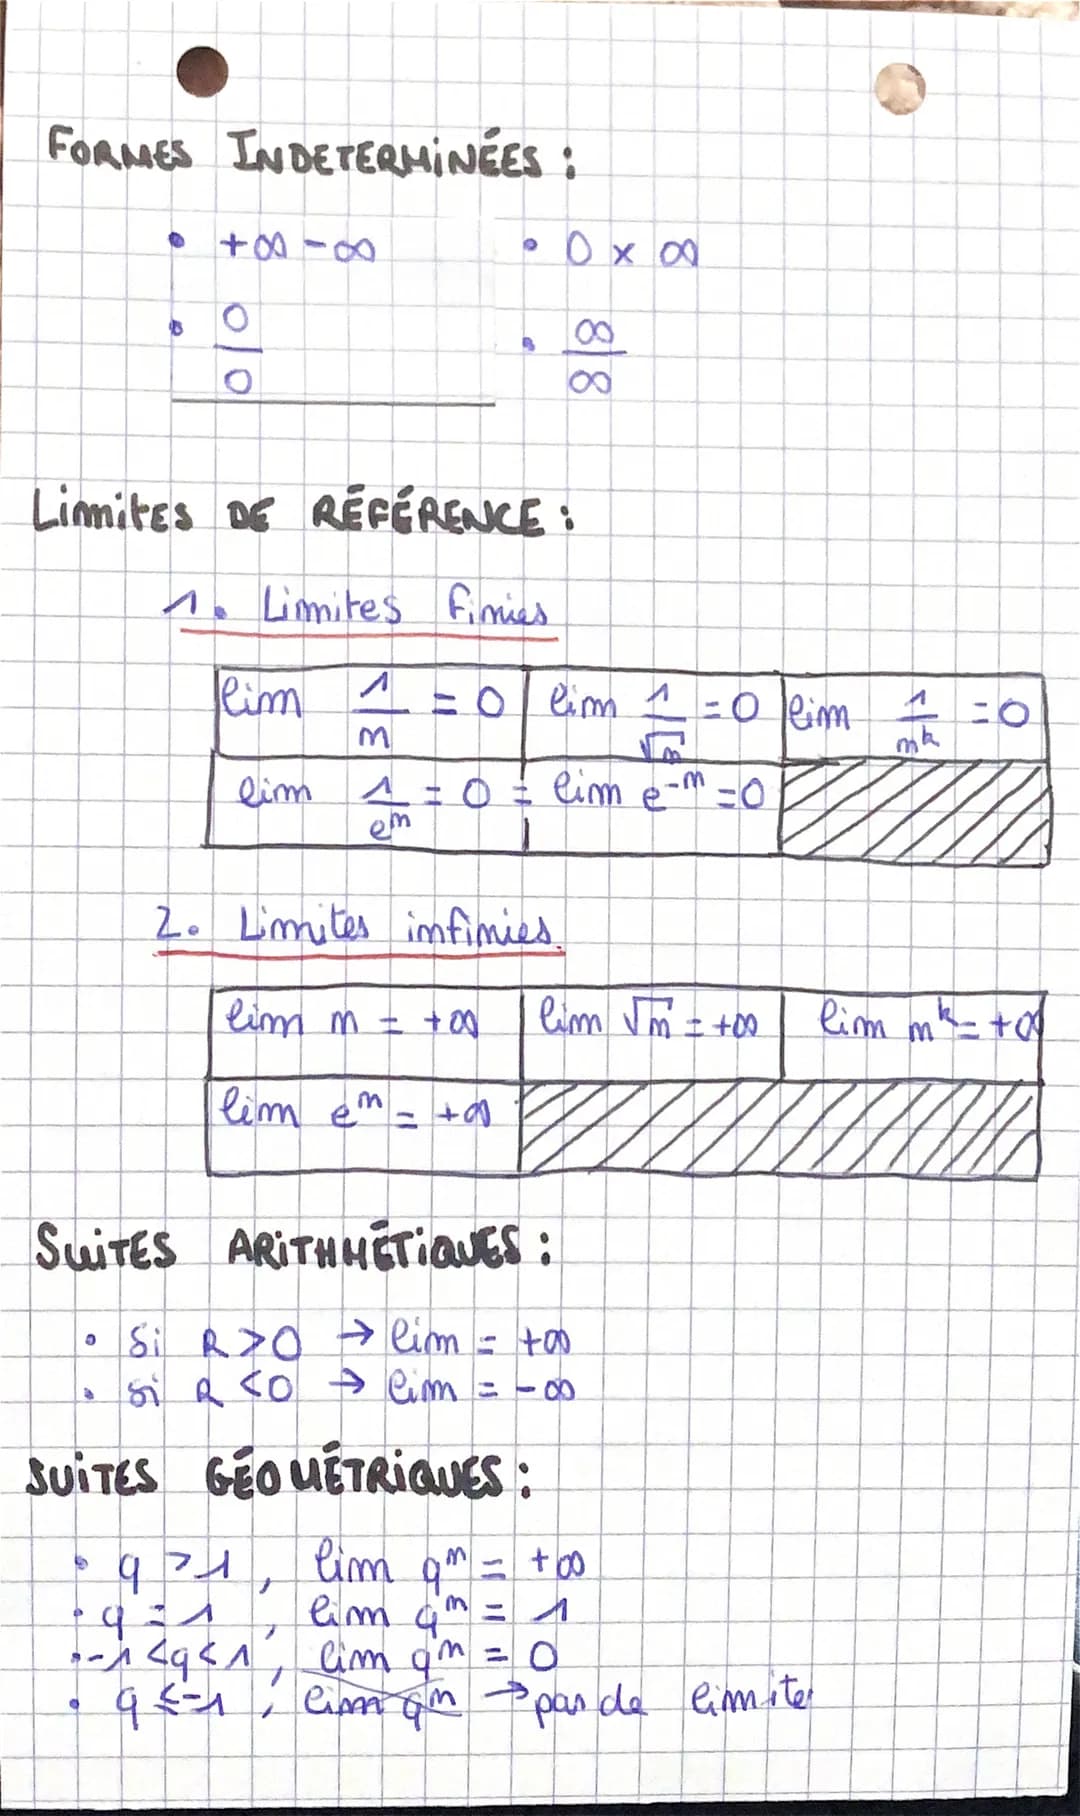 FORMES INDETERMINÉES :
• +∞ -∞ • 0 x ∞
• 0/0 • ∞/∞
Limites DE RÉFÉRENCE :
1. Limites finies
lim 1/n = 0 | lim 1/√n = 0 | lim 1/n^k = 0
lim 1/e^n = 0 = lim e^-n = 0
2. Limites infinies.
lim n = +∞ | lim √n = +∞ | lim n^k = +∞
lim e^n = +∞
SUITES ARITHMÉTIQUES :
• Si R > 0 → lim = +∞
• si R < 0 → lim = -∞
SUITES GÉOMÉTRIQUES :
• q > 1, lim q^n = +∞
• q = 1, lim q^n = 1
• -1 < q < 1, lim q^n = 0
• q ≤ -1, lim q^n → pas de limites